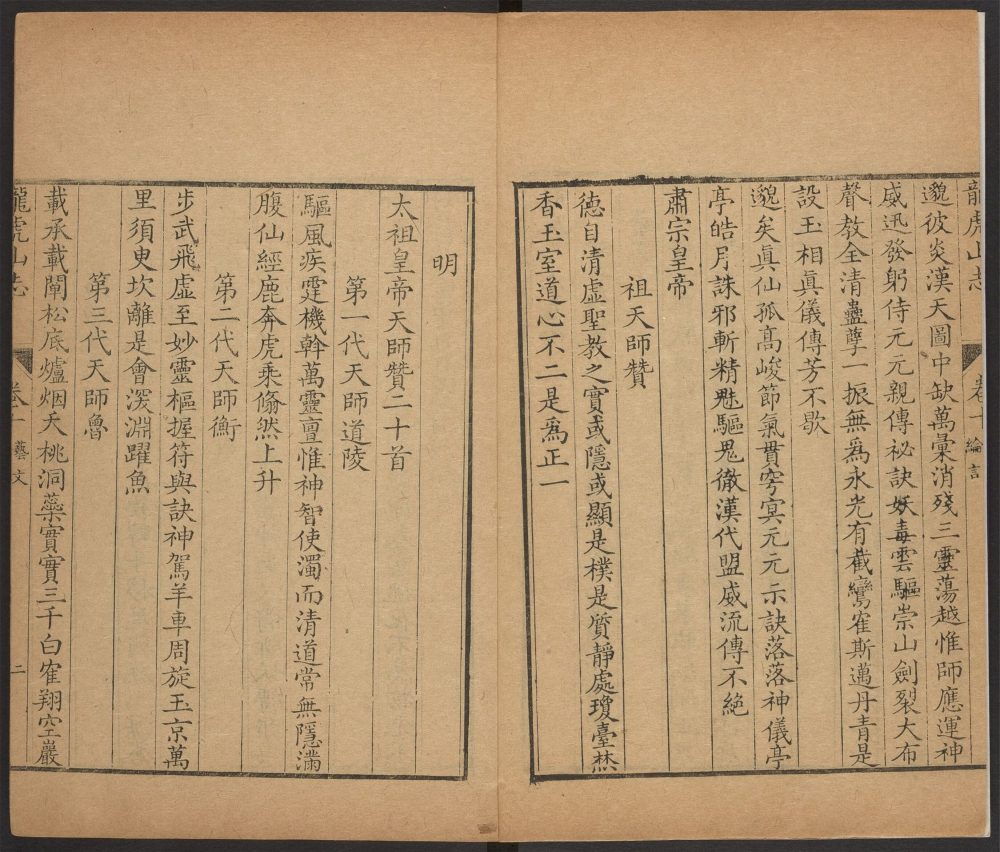 龍虎山志 卷十 綸言
邈彼炎漢天圖中缺萬彙消殘三靈蕩越惟師應運神
威迅發躬侍元元親傳祕訣妖毒雲驅崇山劍裂大布
聲教全清蠱孽一振無為永光有截鸞隺斯邁丹青是
設玉相眞儀傳芳不歇
邈矣眞仙孤高峻節氣貫穹㝠元元示訣落落神儀亭
亭皓月誅邪斬精魅驅鬼徹漢代盟威流傳不絶
肅宗皇帝
祖天師贊
德自清虛聖教之實或隱或顯是樸是質靜處瓊臺焚
香玉室道心不二是為正一
明
太祖皇帝天師贊二十首
第一代天師道陵
驅風疾霆機斡萬靈亶惟神智使濁而清道常無隱滿
腹仙經鹿奔虎乘翛然上升
第二代天師衡
步武飛虛至妙靈樞握符與訣神駕羊車周旋玉京萬
里須臾坎離是會淡淵躍魚
第三代天師魯
載承載闡松底爐烟夭桃洞蘂實實三千白隺翔空巖
龍虎山志 卷十一 藝文 二